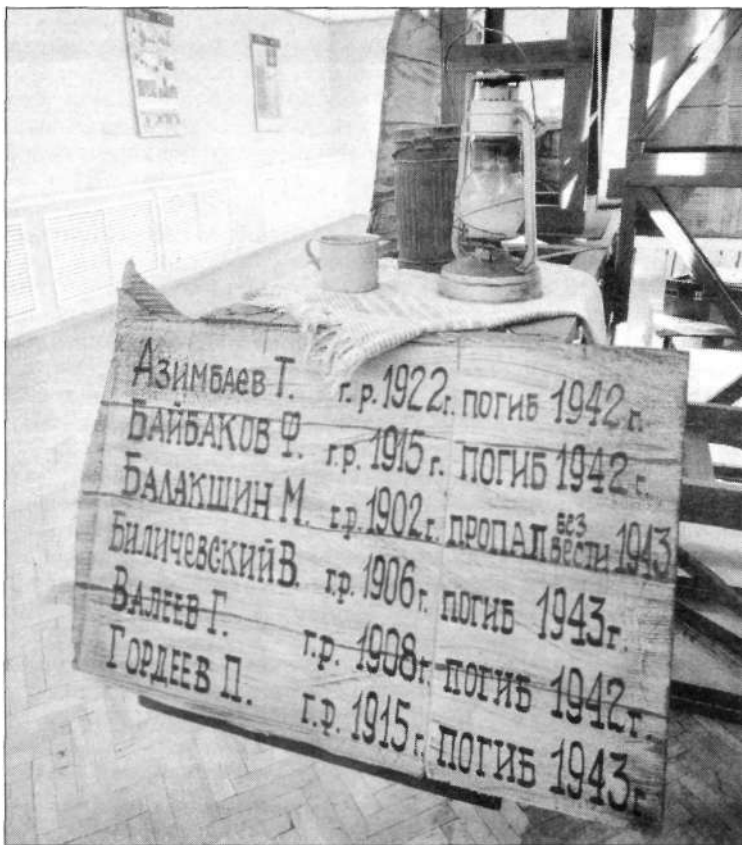 Азимбаев Т. г.р. 1922г. погиб 1942 г.
Байбаков Ф. г.р. 1915 г. погиб 1942 г.
Балакшин М. г.р. 1902 г. пропал без вести 1943
Биличевский В. г.р. 1906 г. погиб 1943 г.
Валеев Г. г.р. 1908 г. погиб 1942 г.
Гордеев П. г.р. 1915 г. погиб 1943 г.